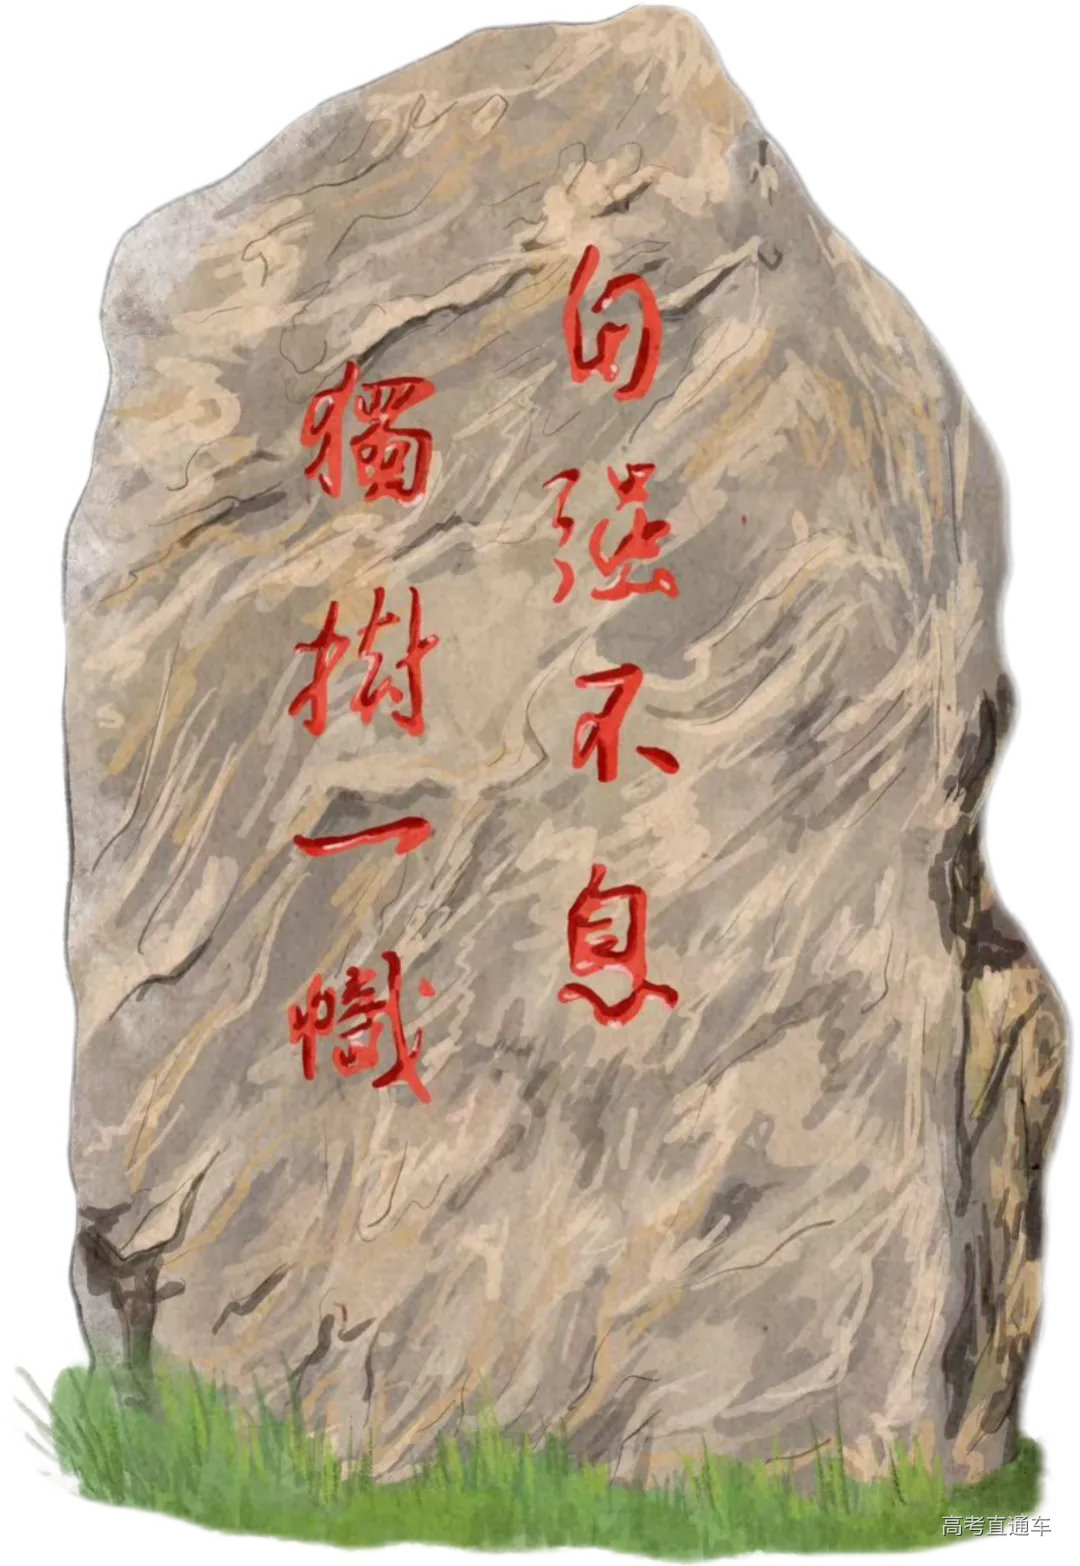 自强不息
獨樹一幟
高考直通车